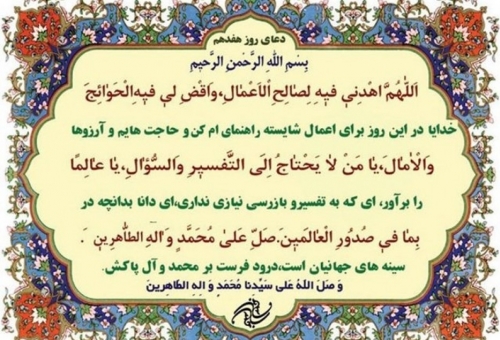 دعای روز هفدهم
بِسْمِ اللهِ الرَّحْمنِ الرَّحِيمِ
اَللّهُمَّ اهْدِني فيهِ لِصالِحِ الْاَعْمالِ،وَاقْضِ لي فيهِ الْحَوائِجَ
خدایا در این روز برای اعمال شایسته راهنمای ام کن و حاجت هایم و آرزوها
وَالْاٰمالَ،يا مَنْ لا يَحْتاجُ اِلَى التَّفْسيرِ وَالسُّؤالِ،يا عالِمًا
را برآور، ای که به تفسیرو بازرسی نیازی نداری،ای دانا بدانچه در
بِما في صُدُورِ الْعالَمينَ.صَلِّ عَلىٰ مُحَمَّدٍ وَالِهِ الطّاهِرينَ .
سینه های جهانیان است،درود فرست بر محمد و آل پاکش.
وَ صَلَ اللهُ عَلى سَيِّدِنا مُحَمَدٍ وَ الِهِ الطاهِرينَ